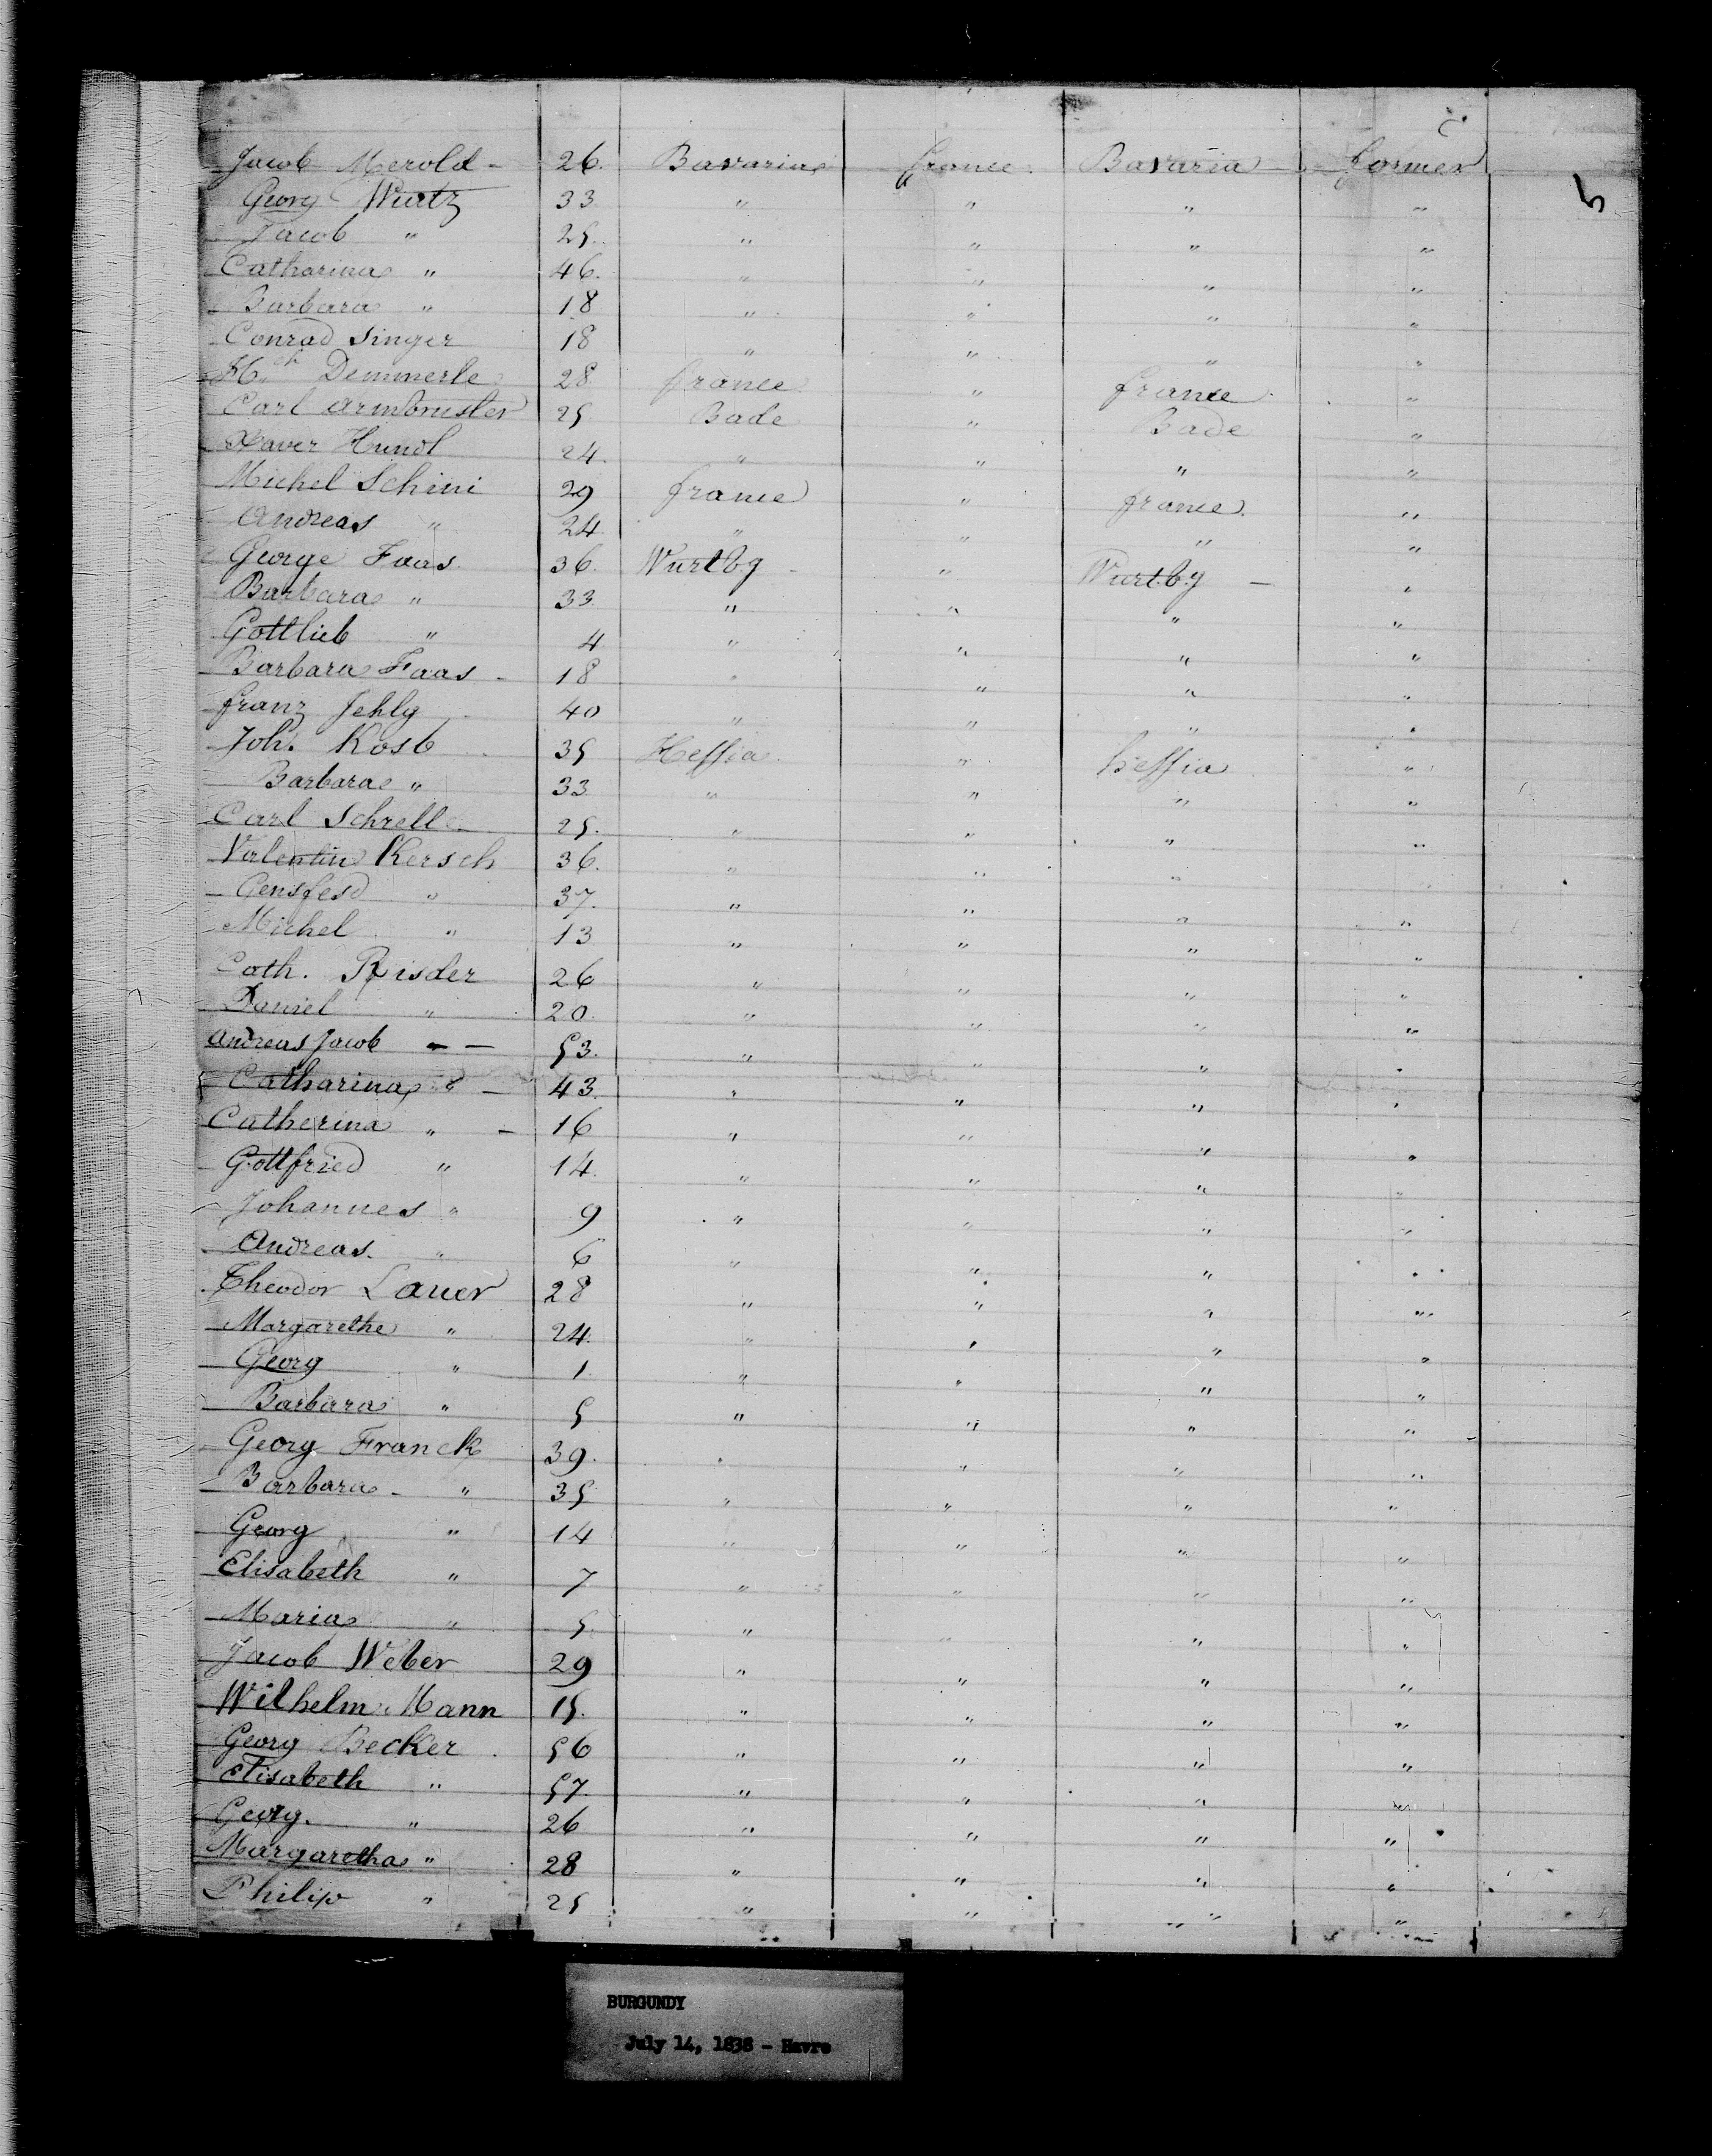 5
Jacob Merold - 26. Bavaria france Bavaria - former
Georg Wurtz 33 " " " "
Jacob " 25. " " " "
Catharina " 46. " " " "
Barbara " 18 " " " "
Conrad Singer 18 " " " "
Demmerle 28 france " france "
Carl Armbruster 25. Bade " Bade "
Xaver Hundl 24. " " " "
Michel Schini 29 france " france "
Andreas " 24. " " " "
George Faas 36. Wurtbg - " Wurtbg - "
Barbara " 33. " " " "
Gottlieb " 4 " " " "
Barbara Faas - 18 " " " "
franz Jehly 40 " " " "
Joh. Kost 35 Hessia " hessia "
Barbara " 33 " " " "
Carl Schrell 25. " " " "
Valentin Kersch 36. " " " "
Gensfesd " 37. " " " "
Michel " 13 " " " "
Cath. Risder 26 " " " "
Daniel " 20. " " " "
Andreas Jacob - - 53. " " " "
Catharina " - 43. " " " "
Catherina " - 16 " " " "
Gottfried " 14. " " " "
Johannes " 9 " " " "
Andreas. " 6 " " " "
Theodor Lauer 28 " " " "
Margarethe " 24. " " " "
Georg " 1. " " " "
Barbara " 5 " " " "
Georg Franck 39. " " " "
Barbara - " 35 " " " "
Georg " 14 " " " "
Elisabeth " 7 " " " "
Maria " 5. " " " "
Jacob Weber 29 " " " "
Wilhelm Mann 15. " " " "
Georg Becker 56 " " " "
Elisabeth " 57. " " " "
Georg. " 26 " " " "
Margaretha " 28 " " " "
Philip " 25 " " " "
BURGUNDY
July 14, 1838 - Havre